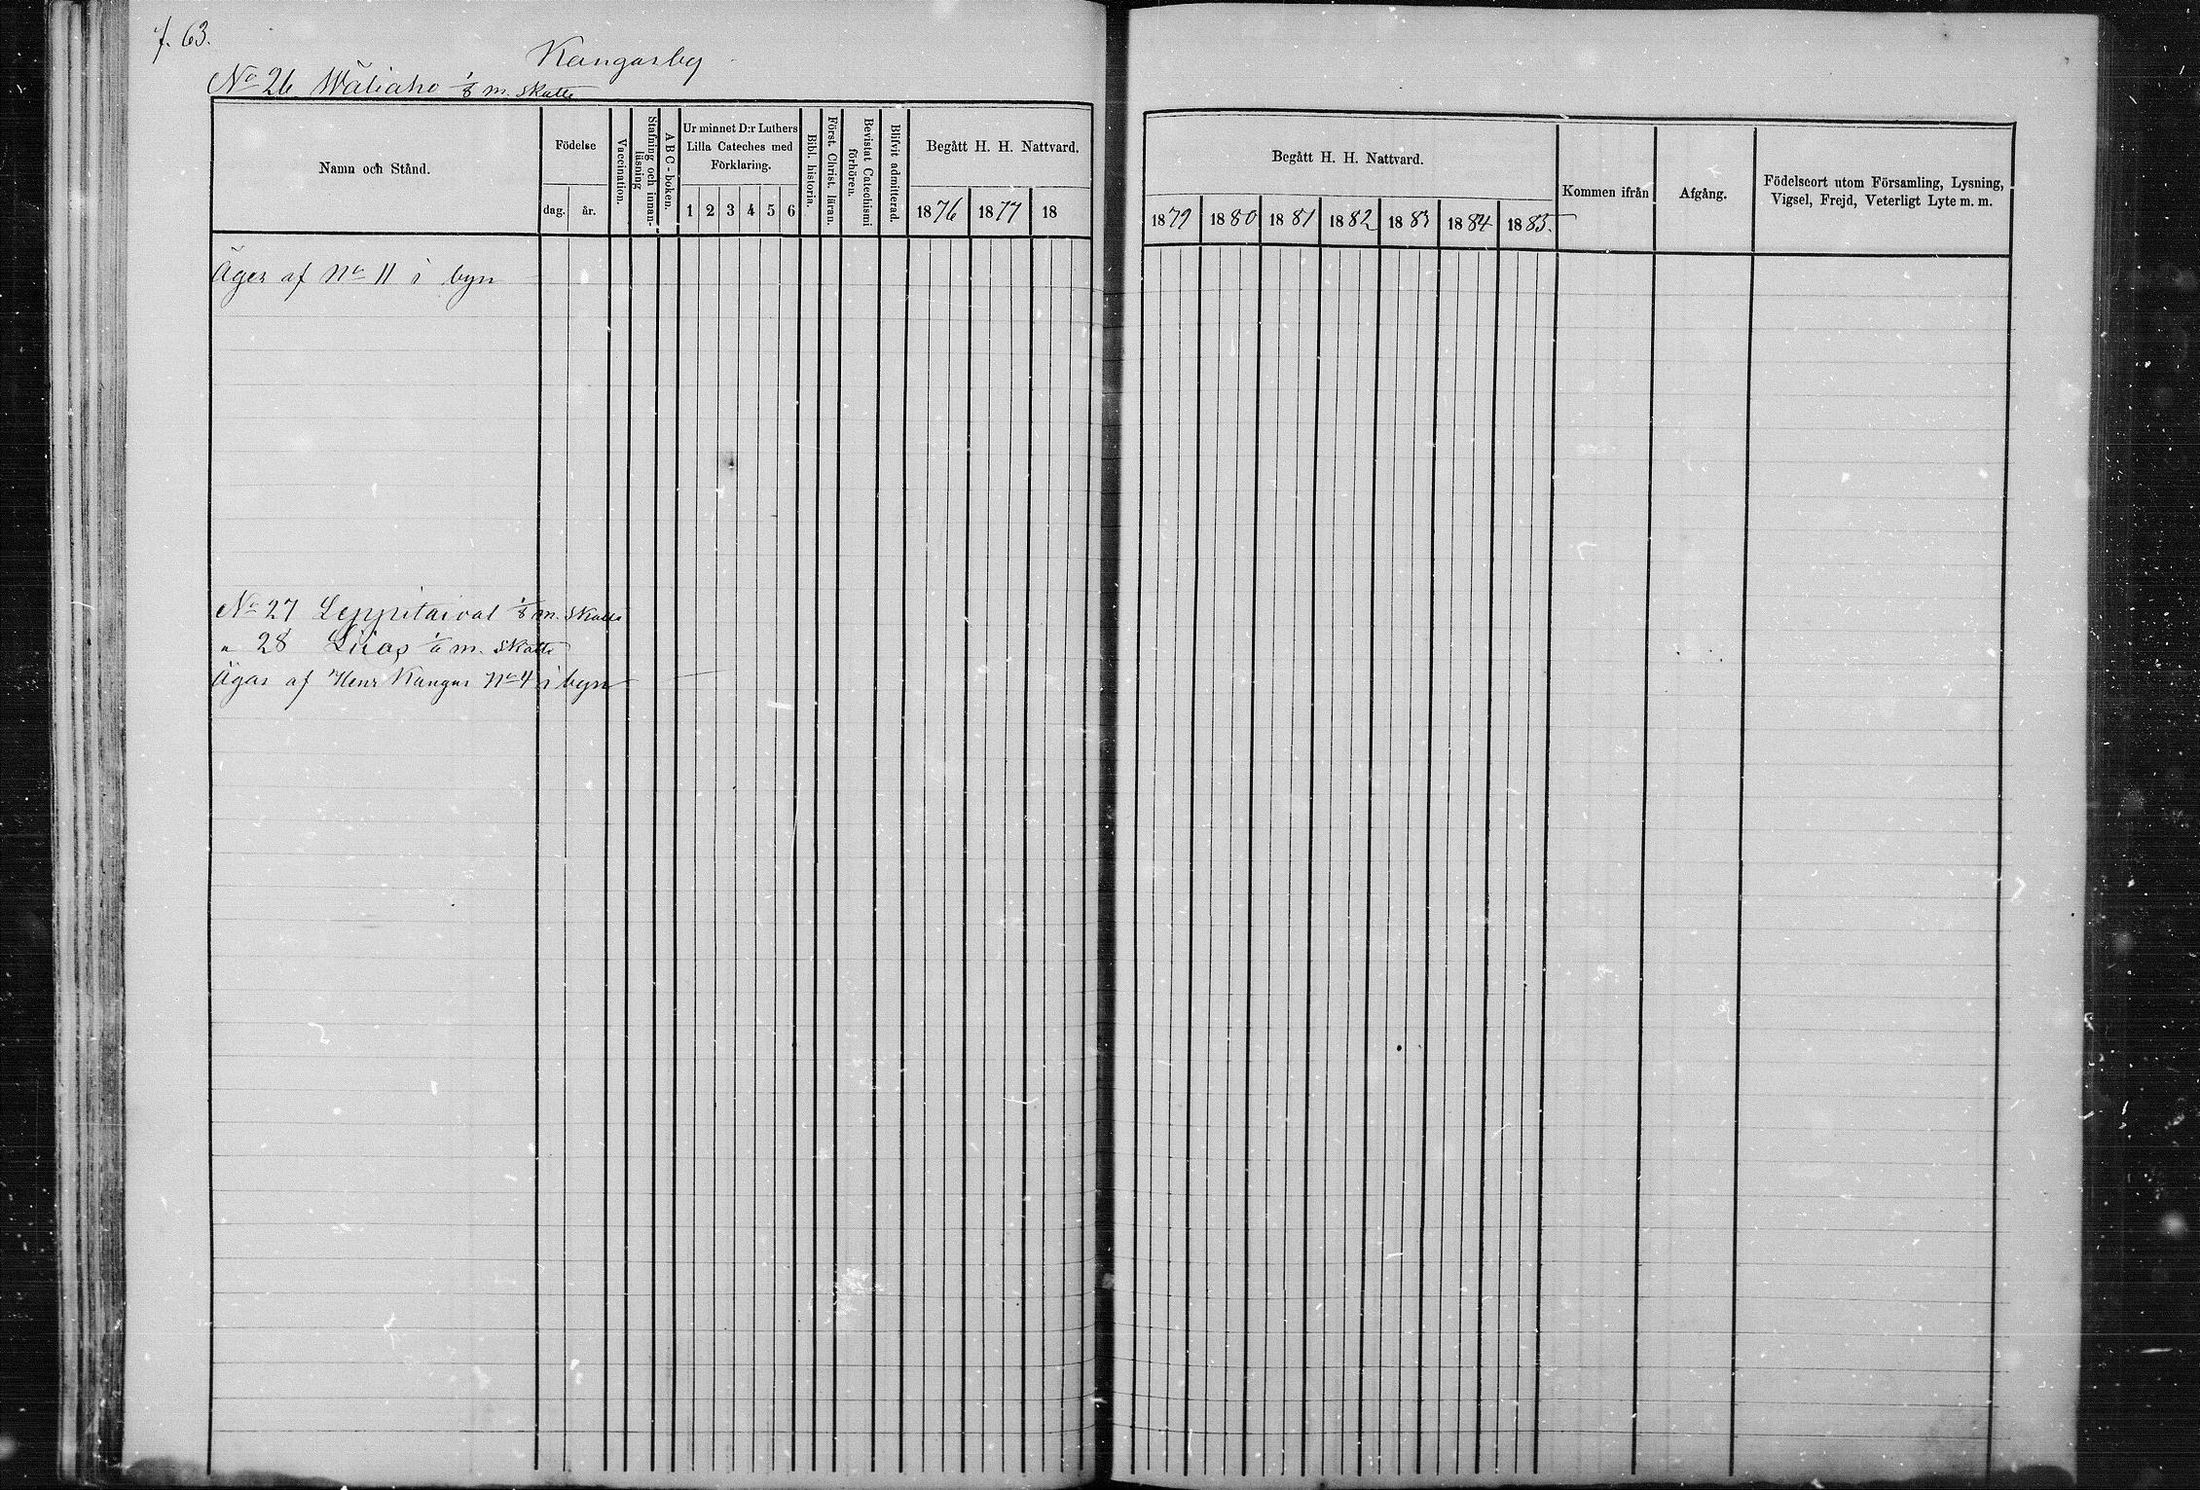 f. 63.
Kangasby
No 26 Wäliaho 1/8 m. Skatte
Namn och Stånd.
Födelse
dag.
år.
Vaccination.
Stafning och innan-
läsning
A B C - boken.
Ur minnet D:r Luthers
Lilla Cateches med
Förklaring.
1 2 3 4 5 6
Bibl. historia.
Först. Christ. läran.
Bevistat Catechismi
förhören.
Blifvit admitterad.
Begått H. H. Nattvard.
1876 1877 18
Begått H. H. Nattvard.
1879 1880 1881 1882 1883 1884 1885.
Kommen ifrån
Afgång.
Födelseort utom Församling, Lysning,
Vigsel, Frejd, Veterligt Lyte m. m.
Äges af No 11 i byn
No 27 Leppitaival 1/8 m. Skatte
" 28 m. Skatte
Ägas af Henr Kangas No 4 i byn